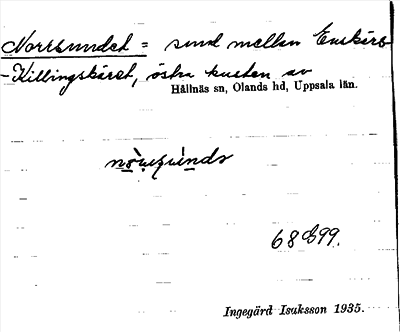 Norrsundet = sund mellan Enskäret
-Killingskäret, östra kusten av
Hållnäs sn, Olands hd, Uppsala län.
68 G 99.
Ingegärd Isaksson 1935.